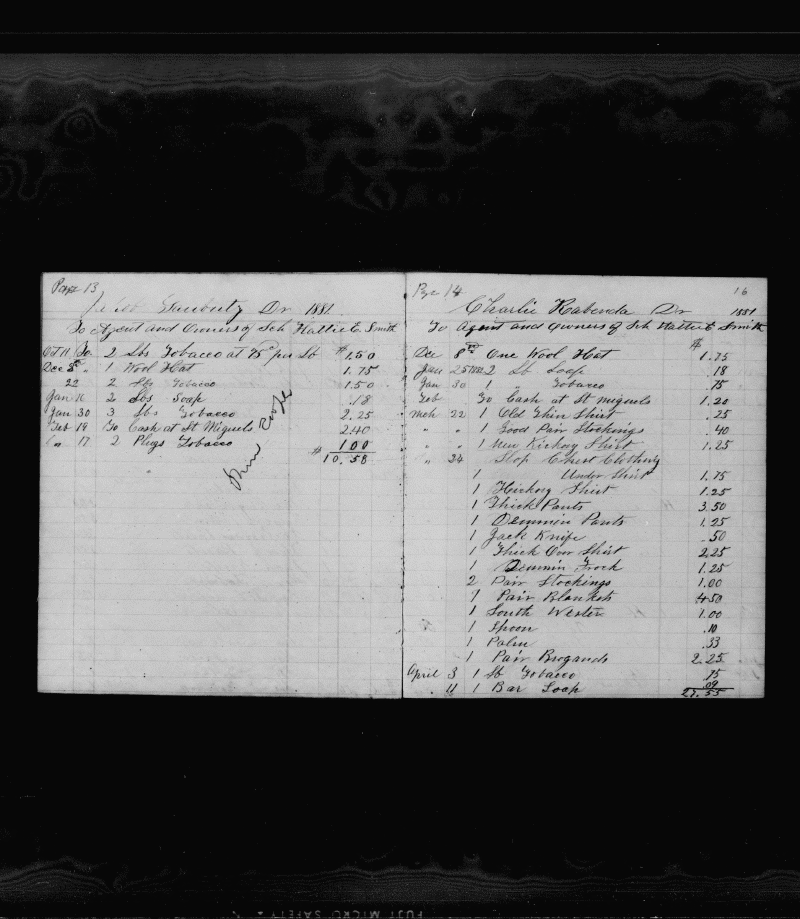 Page 13
Dr 1881
To Agent and Owners of Sch Hattie E. Smith
Oct 11 To 2 Lbs Tobacco at 75c per Lb $1.50
Dec 8th " 1 Wool Hat 1.75
22 2 Lbs Tobacco 1.50
Jan 16 2 Lbs Soap .18
Jan 30 3 Lbs Tobacco 2.25
Feb 19 To Cash at St Miguels 2.40
" 17 2 Plugs Tobacco 1.00
$10.58
Page 14
16
Charlie Rabenda Dr 1881
To Agent and Owners of Sch Hattie E Smith
$
Dec 8th One Wool Hat 1.75
Jan 25 2 Lb Soap .18
Jan 30 1 " Tobacco .75
Feb To Cash at St miguels 1.20
Mch 22 1 Old Thin Shirt .25
" " 1 Good Pair Stockings .40
" " 1 New Hickory Shirt 1.25
" 24 Slop Chest Clothing
1 Under Shirt 1.75
1 Hickory Shirt 1.25
1 Thick Pants 3.50
1 Demmin Pants 1.25
1 Jack Knife .50
1 Thick Over Shirt 2.25
1 Demmin Frock 1.25
2 Pair Stockings 1.00
1 Pair Blankets 4.50
1 South Wester 1.00
1 Spoon .10
1 Palm .33
1 Pair Brogands 2.25
April 3 1 Lb Tobacco .75
" 11 1 Bar Soap .09
27.55
FUJI MICRO SAFETY